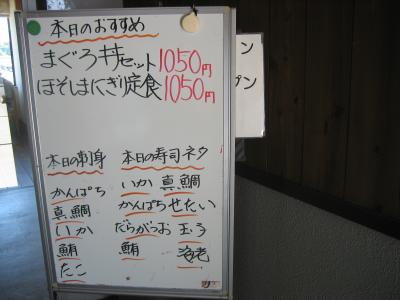 本日のおすすめ
まぐろ丼セット 1050円
ほそしまにぎり定食 1050円
本日の刺身
かんぱち
真鯛
いか
鮪
たこ
本日の寿司ネタ
いか 真鯛
かんぱち せたい
だらがつお 玉子
鮪 海老
ン
プン